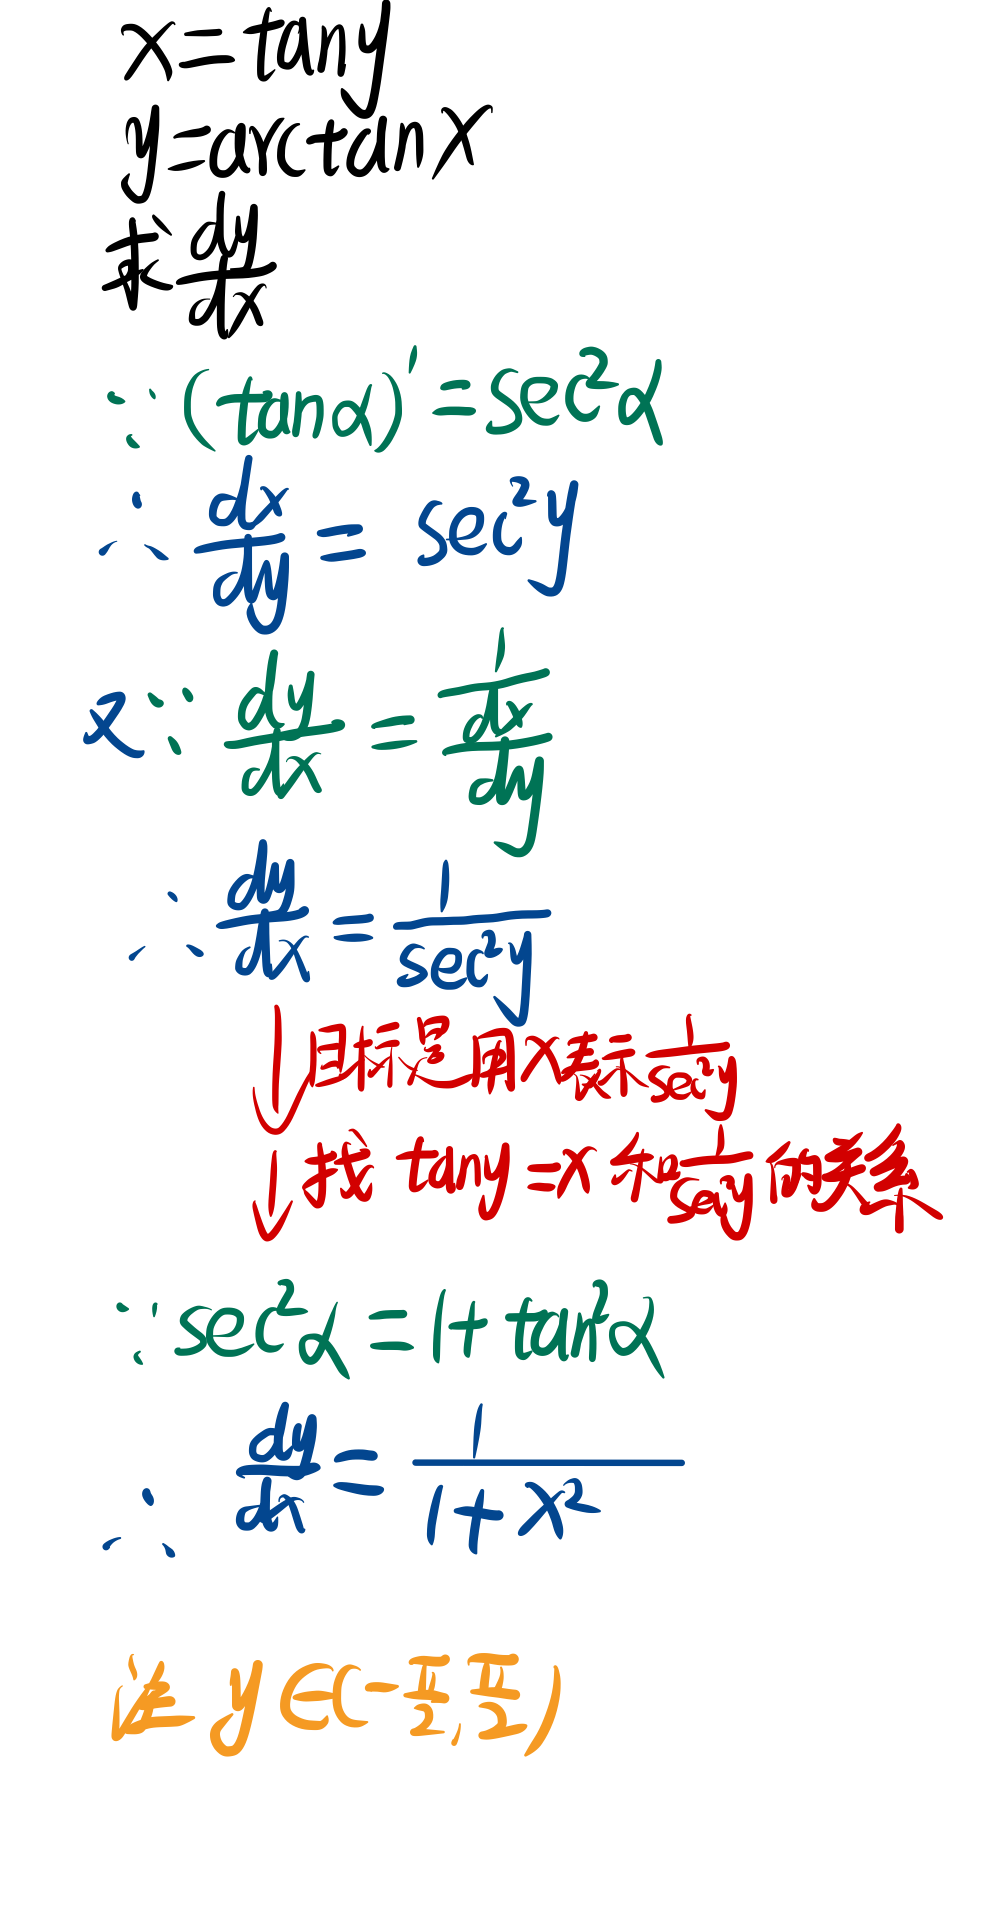 x=tany
y=arctanx
求 dy/dx
∵(tanα)'=sec²α
∴ dx/dy = sec²y
又∵ dy/dx = 1/(dx/dy)
∴ dy/dx = 1/sec²y
↓目标是用x表示 1/sec²y
↓找 tany=x 和 1/sec²y 的关系
∵sec²α=1+tan²α
∴ dy/dx = 1/(1+x²)
注 y∈(-π/2,π/2)